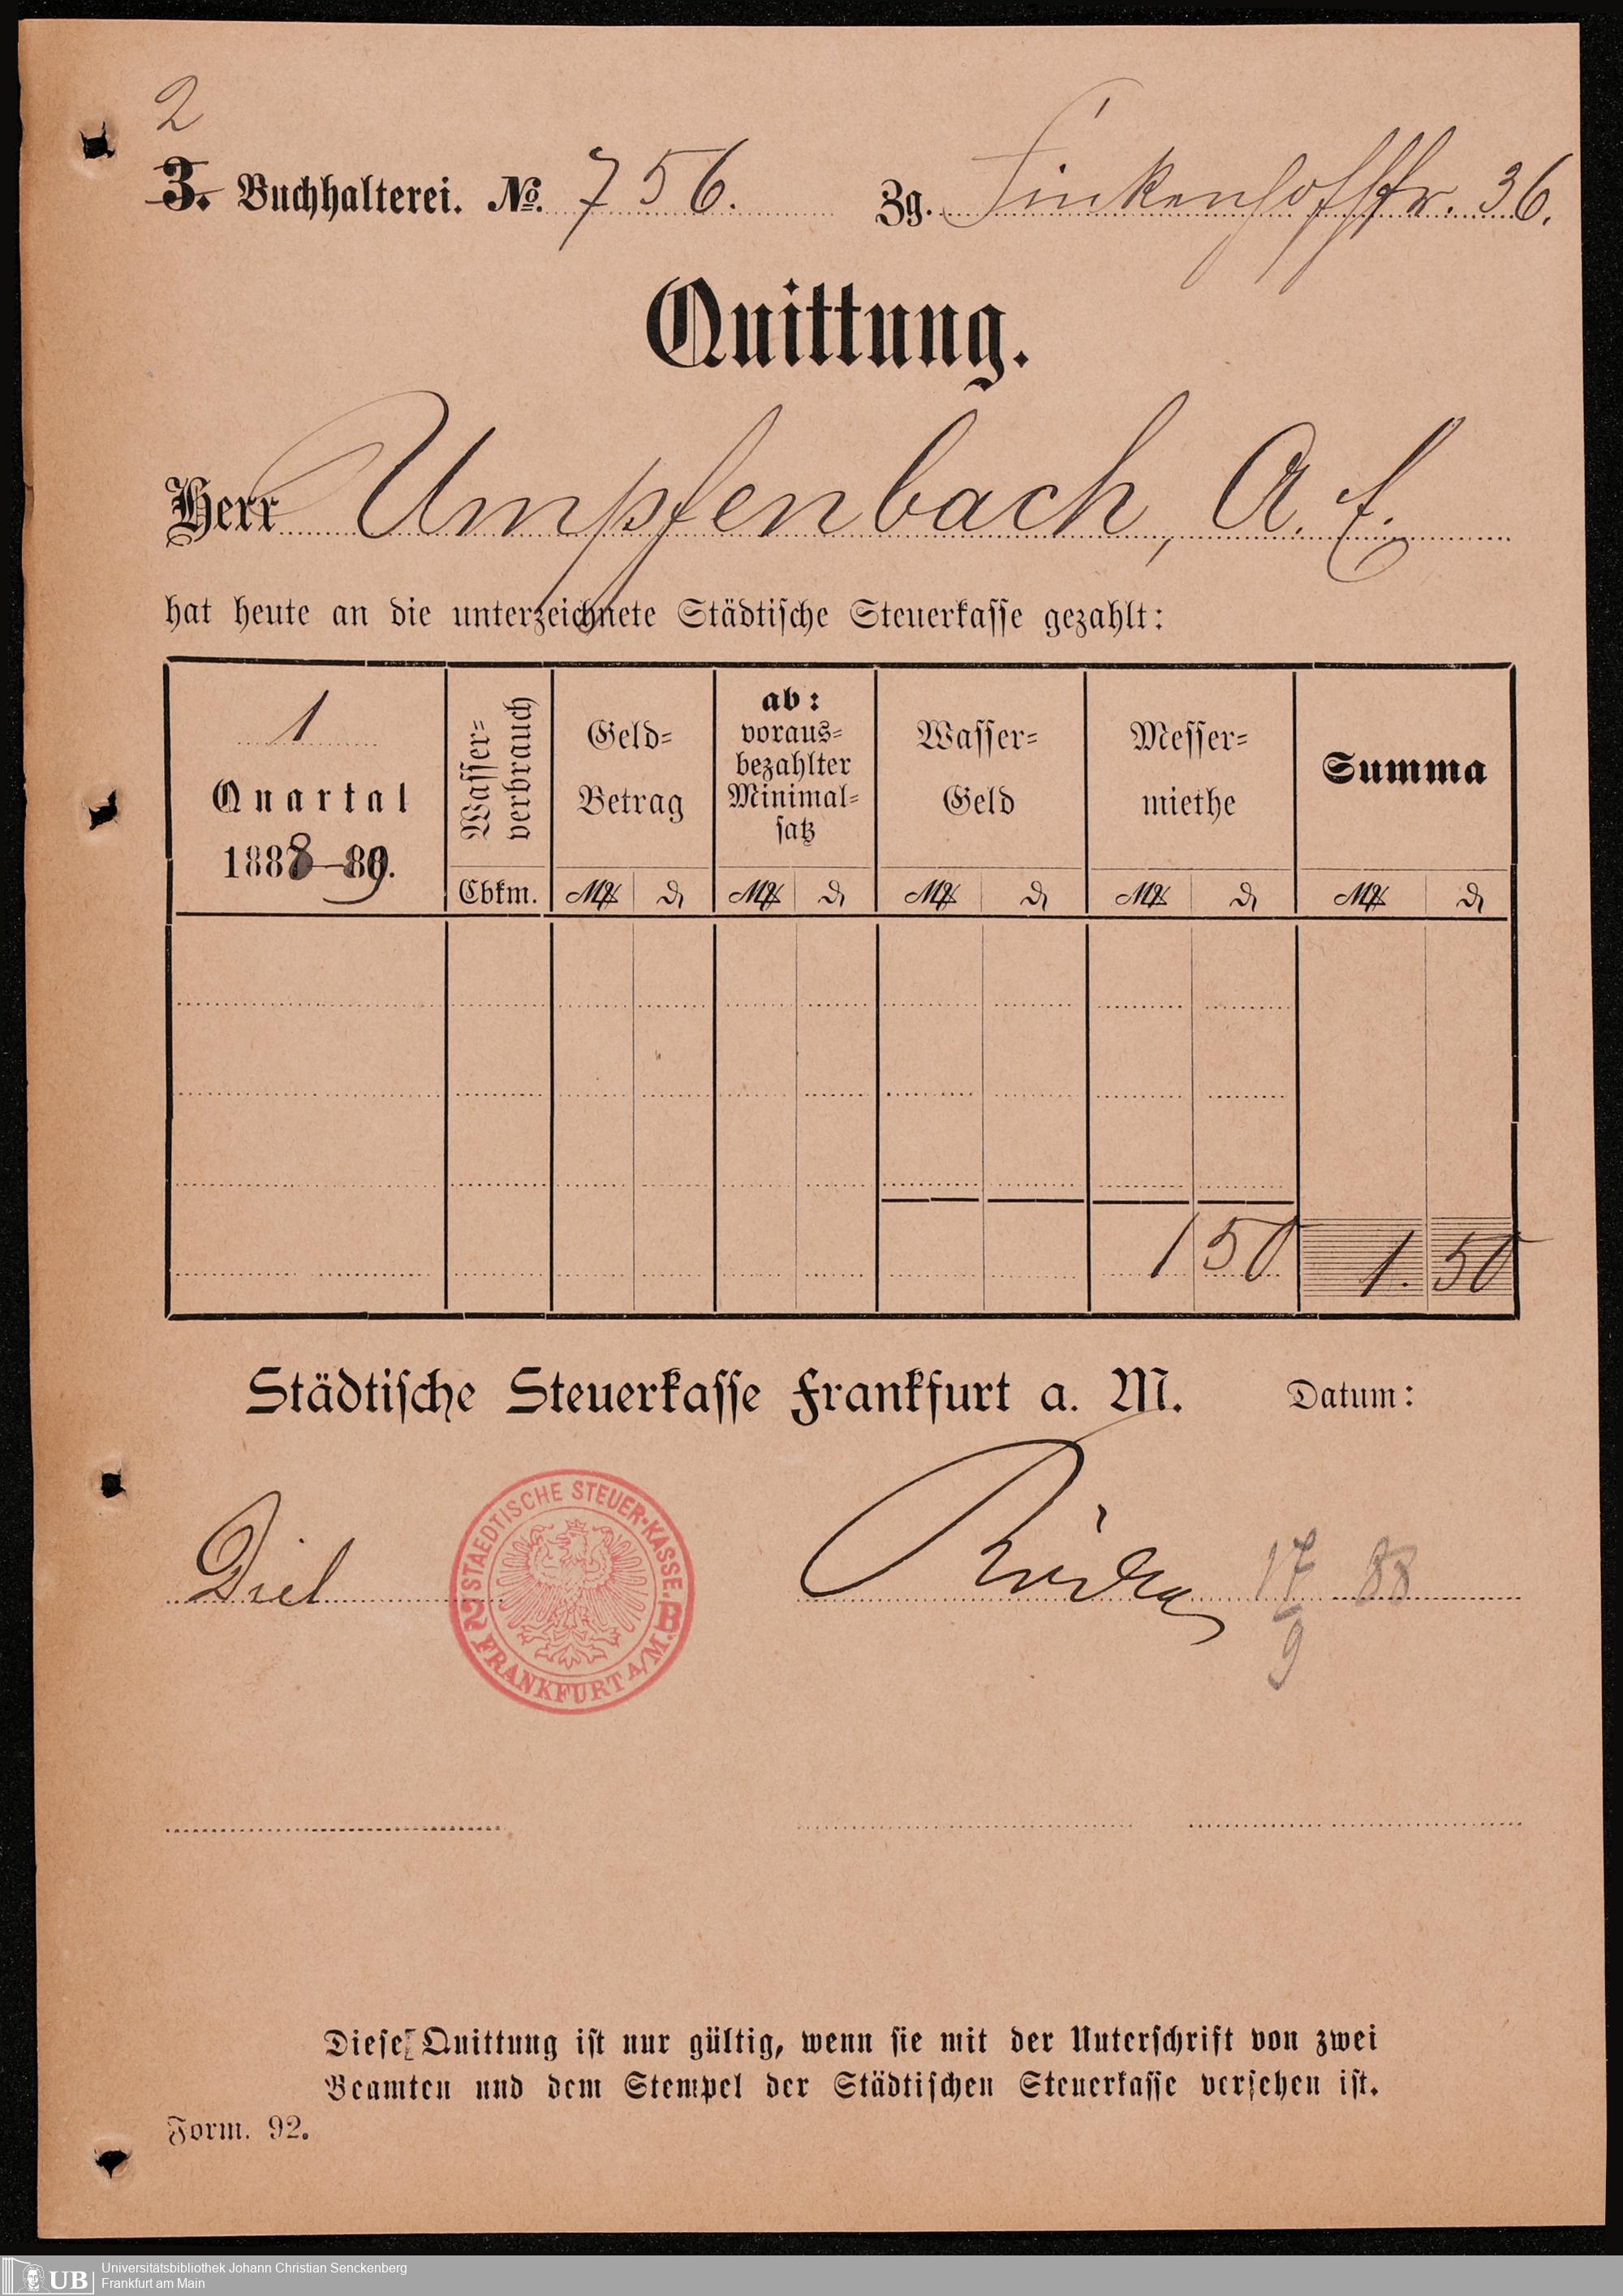 2
3. Buchhalterei. No. 756. Zg. Finkenhofstr. 36.
Quittung.
Herr Umpfenbach, A. f.
hat heute an die unterzeichnete Städtische Steuerkasse gezahlt:
1
Quartal
1888-89.
Wasser-
verbrauch
Cbkm.
Geld-
Betrag
ab:
voraus-
bezahlter
Minimal-
satz
Wasser-
Geld
Messer-
miethe
Summa
M ₰ M ₰ M ₰ M ₰ M ₰
1 50 1. 50
Städtische Steuerkasse Frankfurt a. M. Datum:
Diel
STAEDTISCHE STEUER-KASSE.
2 B
FRANKFURT A/M.
17 88
9
Diese Quittung ist nur gültig, wenn sie mit der Unterschrift von zwei
Beamten und dem Stempel der Städtischen Steuerkasse versehen ist.
Form. 92.
UB
Universitätsbibliothek Johann Christian Senckenberg
Frankfurt am Main